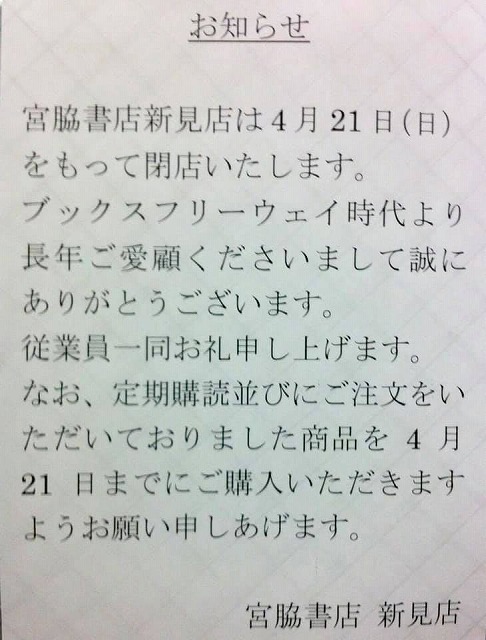 お知らせ
宮脇書店新見店は4月21日(日)
をもって閉店いたします。
ブックスフリーウェイ時代より
長年ご愛顧くださいまして誠に
ありがとうございます。
従業員一同お礼申し上げます。
なお、定期購読並びにご注文をい
ただいておりました商品を 4 月
21 日までにご購入いただきます
ようお願い申しあげます。
宮脇書店 新見店